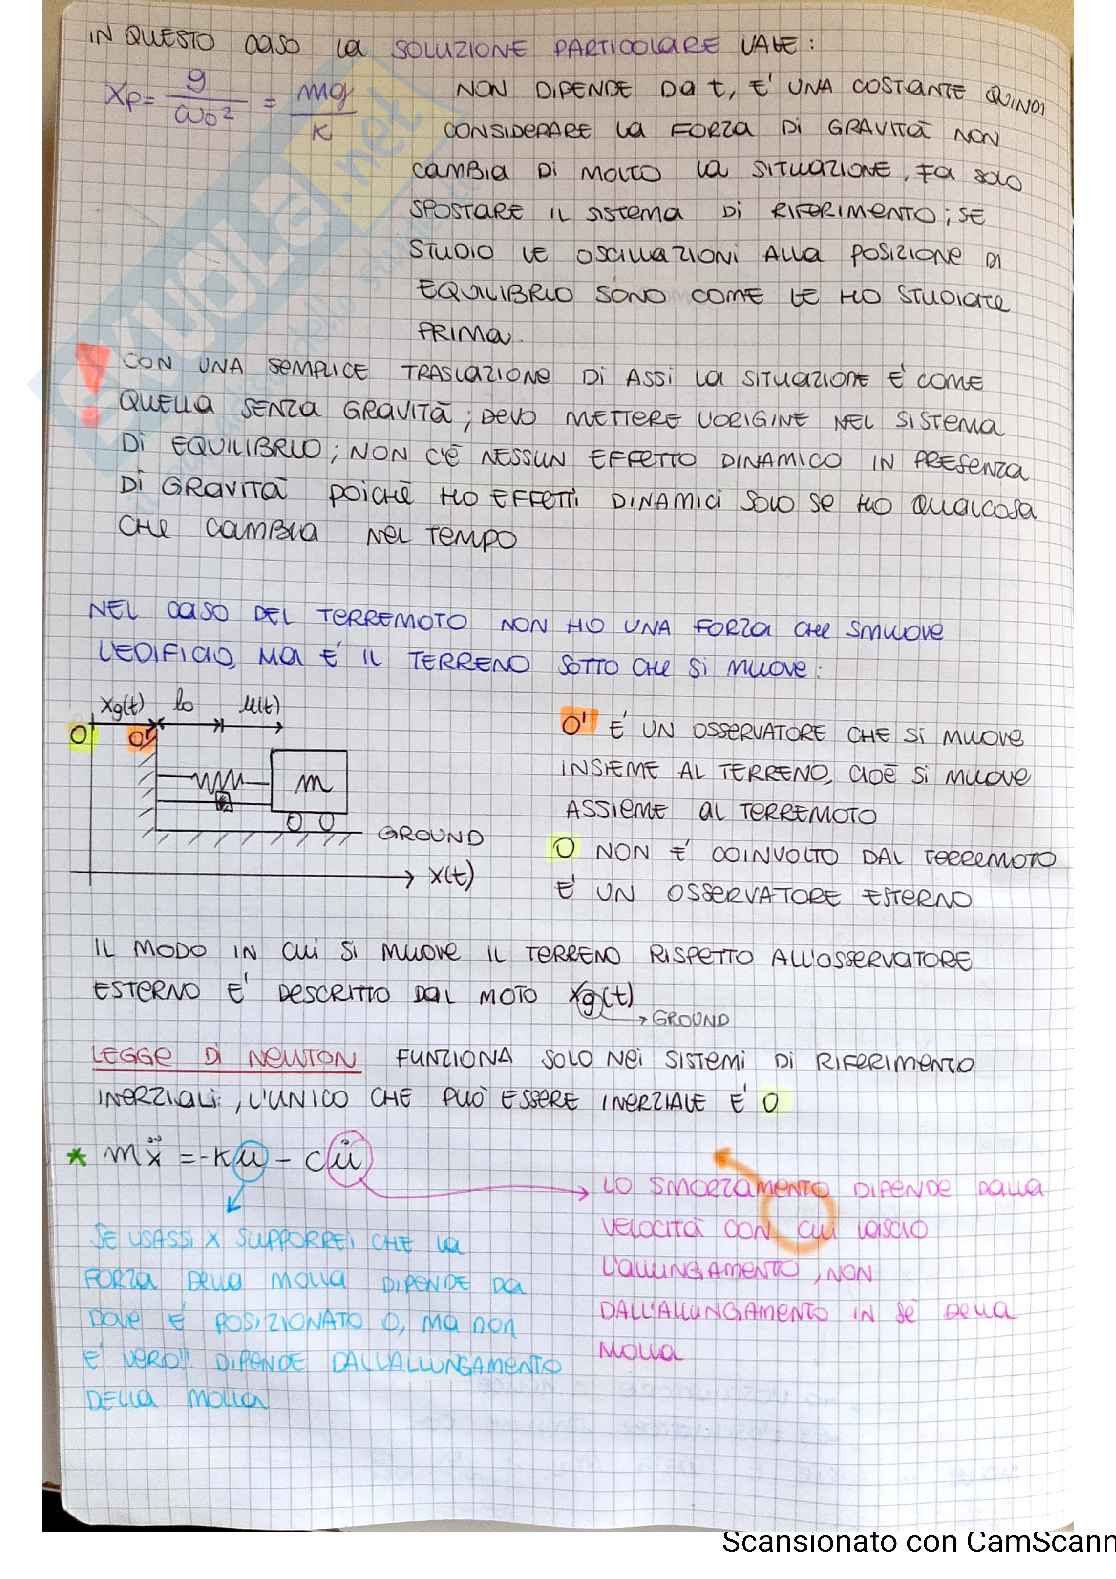 IN QUESTO CASO LA SOLUZIONE PARTICOLARE VALE:
xp = g/ω0² = mg/k NON DIPENDE DA t, E' UNA COSTANTE QUINDI
CONSIDERARE LA FORZA DI GRAVITÀ NON
CAMBIA DI MOLTO LA SITUAZIONE, FA SOLO
SPOSTARE IL SISTEMA DI RIFERIMENTO; SE
STUDIO LE OSCILLAZIONI ALLA POSIZIONE DI
EQUILIBRIO SONO COME LE HO STUDIATE
PRIMA.
! CON UNA SEMPLICE TRASLAZIONE DI ASSI LA SITUAZIONE E' COME
QUELLA SENZA GRAVITÀ; DEVO METTERE L'ORIGINE NEL SISTEMA
DI EQUILIBRIO; NON C'È NESSUN EFFETTO DINAMICO IN PRESENZA
DI GRAVITÀ POICHÈ HO EFFETTI DINAMICI SOLO SE HO QUALCOSA
CHE CAMBIA NEL TEMPO
NEL CASO DEL TERREMOTO NON HO UNA FORZA CHE SMUOVE
L'EDIFICIO, MA E' IL TERRENO SOTTO CHE SI MUOVE:
xg(t) l0 u(t)
O O'
m
GROUND
x(t)
O' E' UN OSSERVATORE CHE SI MUOVE
INSIEME AL TERRENO, CIOÈ SI MUOVE
ASSIEME AL TERREMOTO
O NON E' COINVOLTO DAL TERREMOTO
E' UN OSSERVATORE ESTERNO
IL MODO IN CUI SI MUOVE IL TERRENO RISPETTO ALL'OSSERVATORE
ESTERNO E' DESCRITTO DAL MOTO xg(t)
→ GROUND
LEGGE DI NEWTON FUNZIONA SOLO NEI SISTEMI DI RIFERIMENTO
INERZIALI, L'UNICO CHE PUÒ ESSERE INERZIALE E' O
* mẍ = -ku - cu̇
SE USASSI X SUPPORREI CHE LA
FORZA DELLA MOLLA DIPENDE DA
DOVE E' POSIZIONATO O, MA NON
E' VERO!! DIPENDE DALL'ALLUNGAMENTO
DELLA MOLLA
LO SMORZAMENTO DIPENDE DALLA
VELOCITÀ CON CUI LASCIO
L'ALLUNGAMENTO, NON
DALL'ALLUNGAMENTO IN SÈ DELLA
MOLLA
Scansionato con CamScann